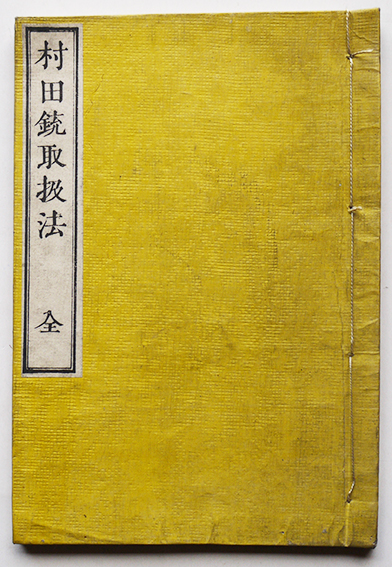 村田銃取扱法 全